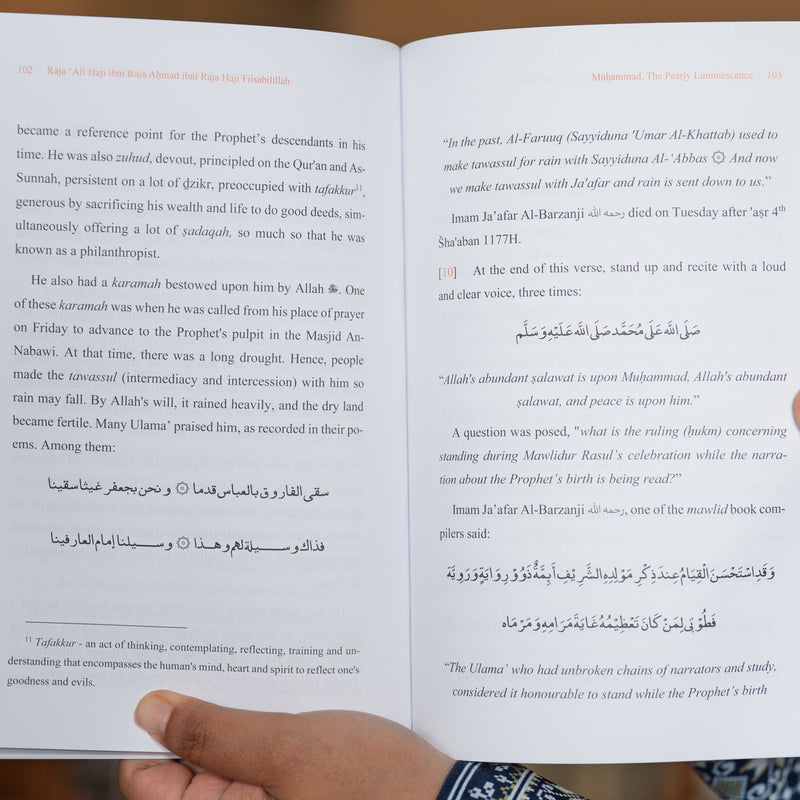 102 · Raja ‘Ali Ḥaji ibni Raja Aḥmad ibni Raja Ḥaji Fiisabilillah
became a reference point for the Prophet’s descendants in his
time. He was also zuhud, devout, principled on the Qur'an and As-
Sunnah, persistent on a lot of ḏzikr, preoccupied with tafakkur¹¹,
generous by sacrificing his wealth and life to do good deeds, sim-
ultaneously offering a lot of ṣadaqah, so much so that he was
known as a philanthropist.
He also had a karamah bestowed upon him by Allah ﷻ. One
of these karamah was when he was called from his place of prayer
on Friday to advance to the Prophet's pulpit in the Masjid An-
Nabawi. At that time, there was a long drought. Hence, people
made the tawassul (intermediacy and intercession) with him so
rain may fall. By Allah's will, it rained heavily, and the dry land
became fertile. Many Ulama’ praised him, as recorded in their po-
ems. Among them:
سقى الفاروق بالعباس قدما ۞ و نحن بجعفر غيثا سقينا
فذاك وسيلة لهم وهذا ۞ وسيلنا إمام العارفينا
¹¹ Tafakkur - an act of thinking, contemplating, reflecting, training and un-
derstanding that encompasses the human's mind, heart and spirit to reflect one's
goodness and evils.
Muḥammad, The Pearly Luminescence · 103
“In the past, Al-Faruuq (Sayyiduna 'Umar Al-Khattab) used to
make tawassul for rain with Sayyiduna Al-‘Abbas ۞ And now
we make tawassul with Ja'afar and rain is sent down to us.”
Imam Ja’afar Al-Barzanji رحمه الله died on Tuesday after 'aṣr 4th
Šha'aban 1177H.
[10] At the end of this verse, stand up and recite with a loud
and clear voice, three times:
صَلَى اللّه عَلَى مُحَمَّد صَلَى اللّه عَلَيْهِ وَسَلَّم
“Allah's abundant ṣalawat is upon Muḥammad, Allah's abundant
ṣalawat, and peace is upon him.”
A question was posed, "what is the ruling (ḥukm) concerning
standing during Mawlidur Rasul’s celebration while the narra-
tion about the Prophet’s birth is being read?”
Imam Ja’afar Al-Barzanji رحمه الله, one of the mawlid book com-
pilers said:
وَقَدِ اسْتَحْسَنَ الْقِيَامُ عِندَ ذِكْرِ مَوْلِدِهِ الشَّرِيْفِ أَيِمَّةٌ ذَوُوْ رِوَايَةٍ وَرَوِيَّة
فَطُوْبَى لِمَنْ كَانَ تَعْظِيْمُهُ غَايَةَ مَرَامِهِ وَمَرْمَاه
“The Ulama’ who had unbroken chains of narrators and study,
considered it honourable to stand while the Prophet’s birth